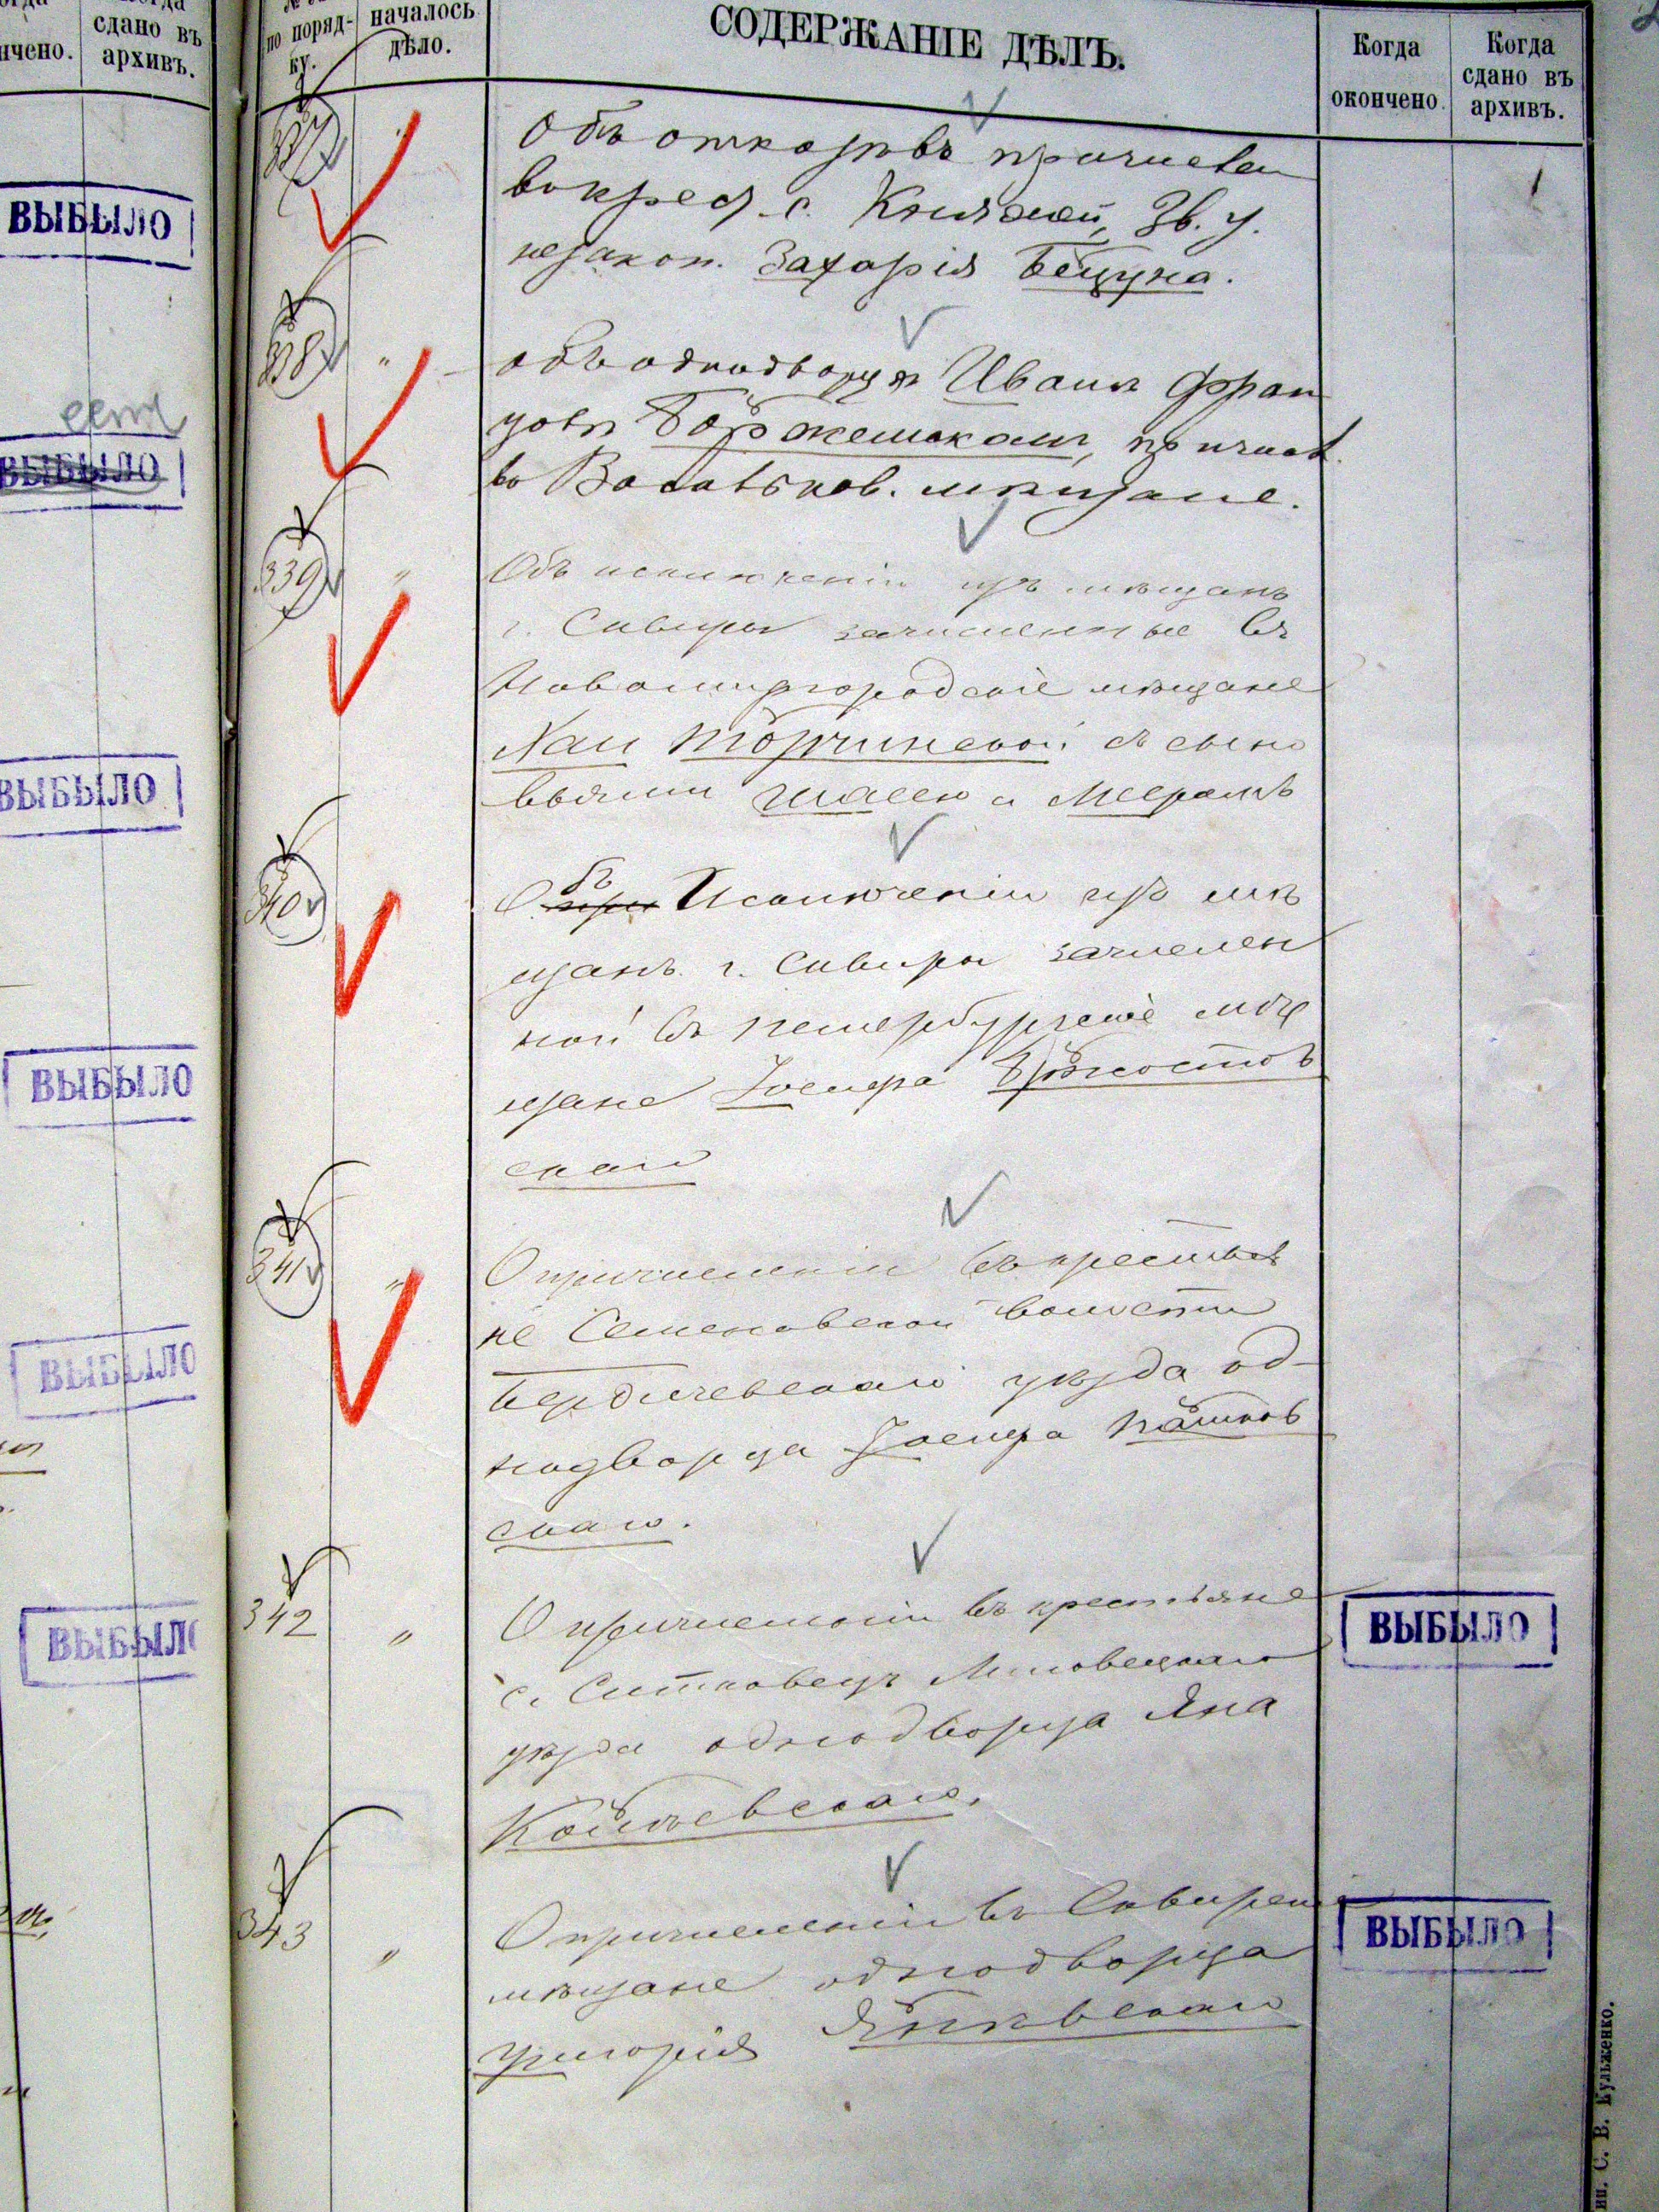 сдано въ
архивъ.
ВЫБЫЛО
ВЫБЫЛО
ВЫБЫЛО
ВЫБЫЛО
ВЫБЫЛО
ВЫБЫЛО
по поряд-
ку.
началось
дѣло.
СОДЕРЖАНІЕ ДѢЛЪ.
Когда
окончено.
Когда
сдано въ
архивъ.
337
Объ отказѣ въ
в с. Княжей, Зв. у.
незакон. Захарія Бецуна.
338 "
объ однодворцѣ Иванѣ Фран
цовѣ причисл.
во Васильков. мѣщане.
339 "
Объ исключеніи изъ мѣщанъ
г. Сквиры зачисленные въ
Новомиргородскіе мѣщане
Хаи Торчинской съ сыно
вьями и Меромъ
340 "
Объ Исключеніи изъ мѣ
щанъ г. Сквиры зачислен
ной въ петербургскіе мѣ
щане Іосифа
скаго
341 "
О причисленіи въ крестья
не Семеновской волости
Бердичевскаго уѣзда од-
нодворца Іосифа
скаго.
342 "
О причисленіи въ крестьяне
с. Ситковецъ Липовецкаго
уѣзда однодворца Яна
ВЫБЫЛО
343 "
О причисленіи въ Сквирскіе
мѣщане однодворца
Григорія
ВЫБЫЛО
С. В. Кульженко.